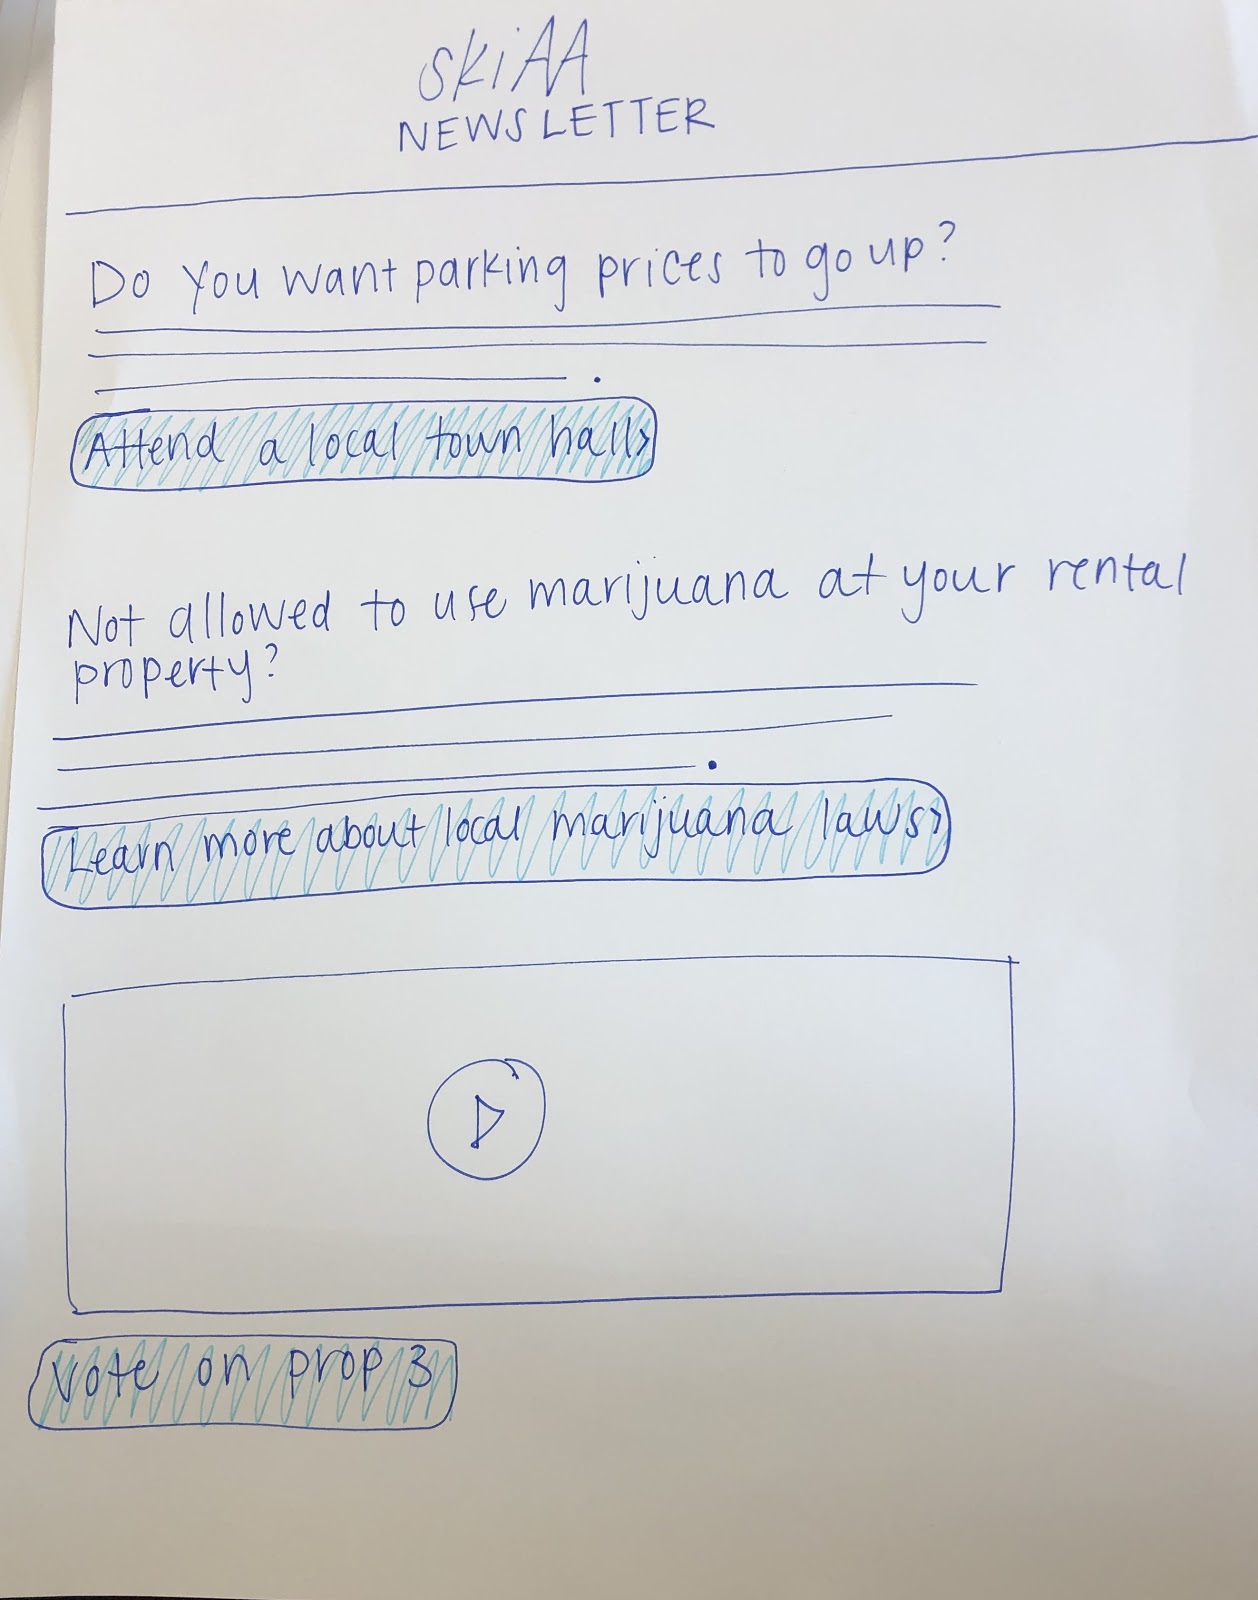 skiAA
NEWSLETTER
Do you want parking prices to go up?
Attend a local town hall>
Not allowed to use marijuana at your rental
property?
Learn more about local marijuana laws>
Vote on prop 3